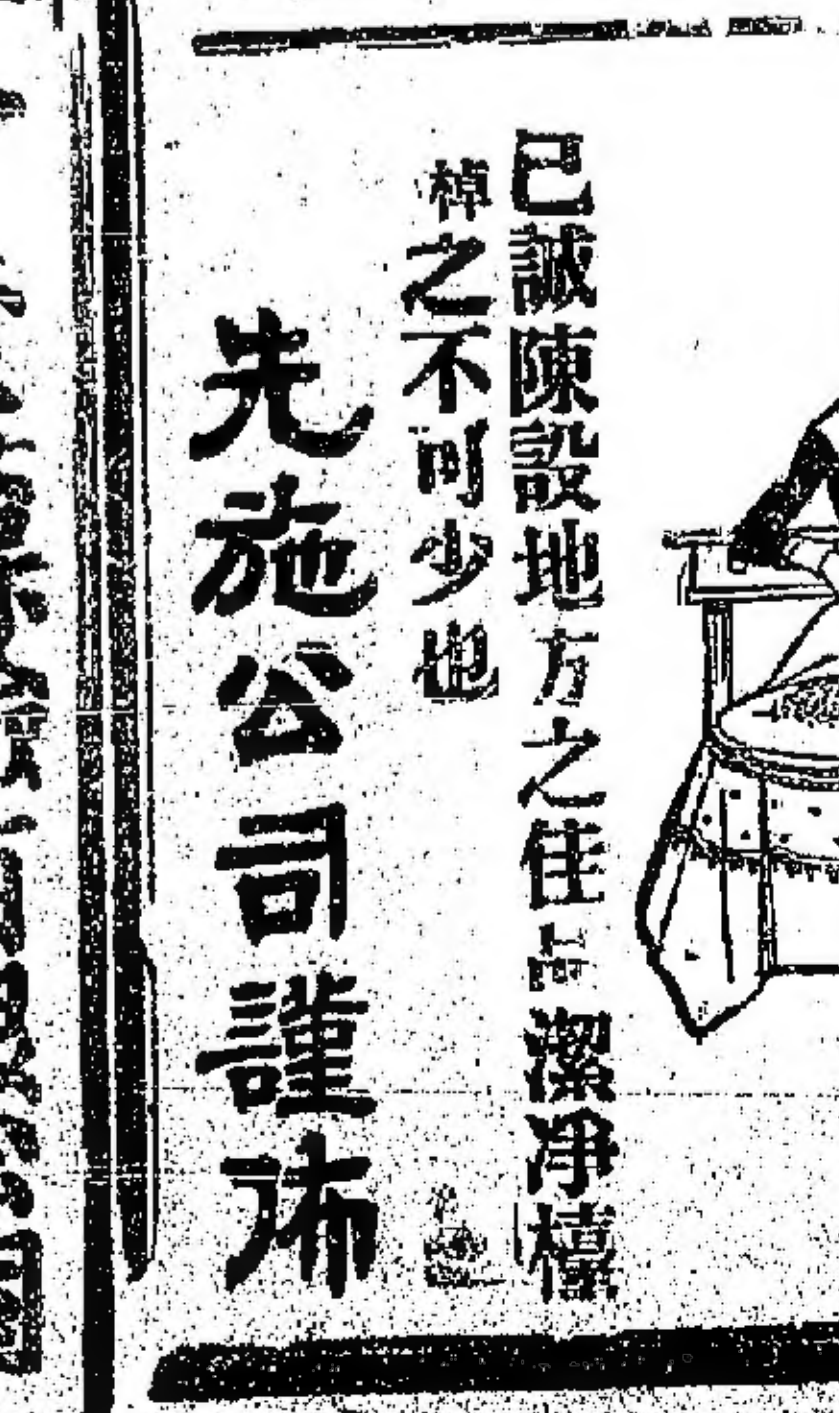 已誠陳設地方之佳品潔淨檯
棹之不可少也
先施公司謹佈